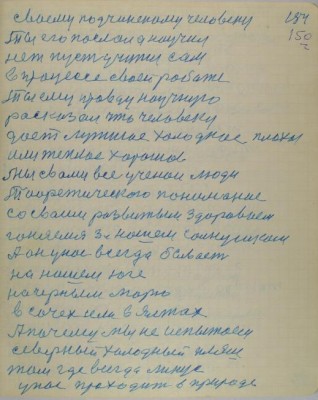 своему подчиненому человеку
154
150
Ты его послал а научил
нет пуст учити сам
в процессе своей работе
Ты ему правду научного
рассказал что человеку
дает лутшие холодное плохое
или теплае хорошое
Мы с вами все ученаи люди
Теоретического понимание
со своим развитым здороваем
гоняемся за нашем солнушкам
А он у нас всегда бывает
на нашем юге
на черным марю
в сочех или в Ялтах
А почему мы не испытаем
северный холодный пляж
там где всегда минус
у нас проходит в природе